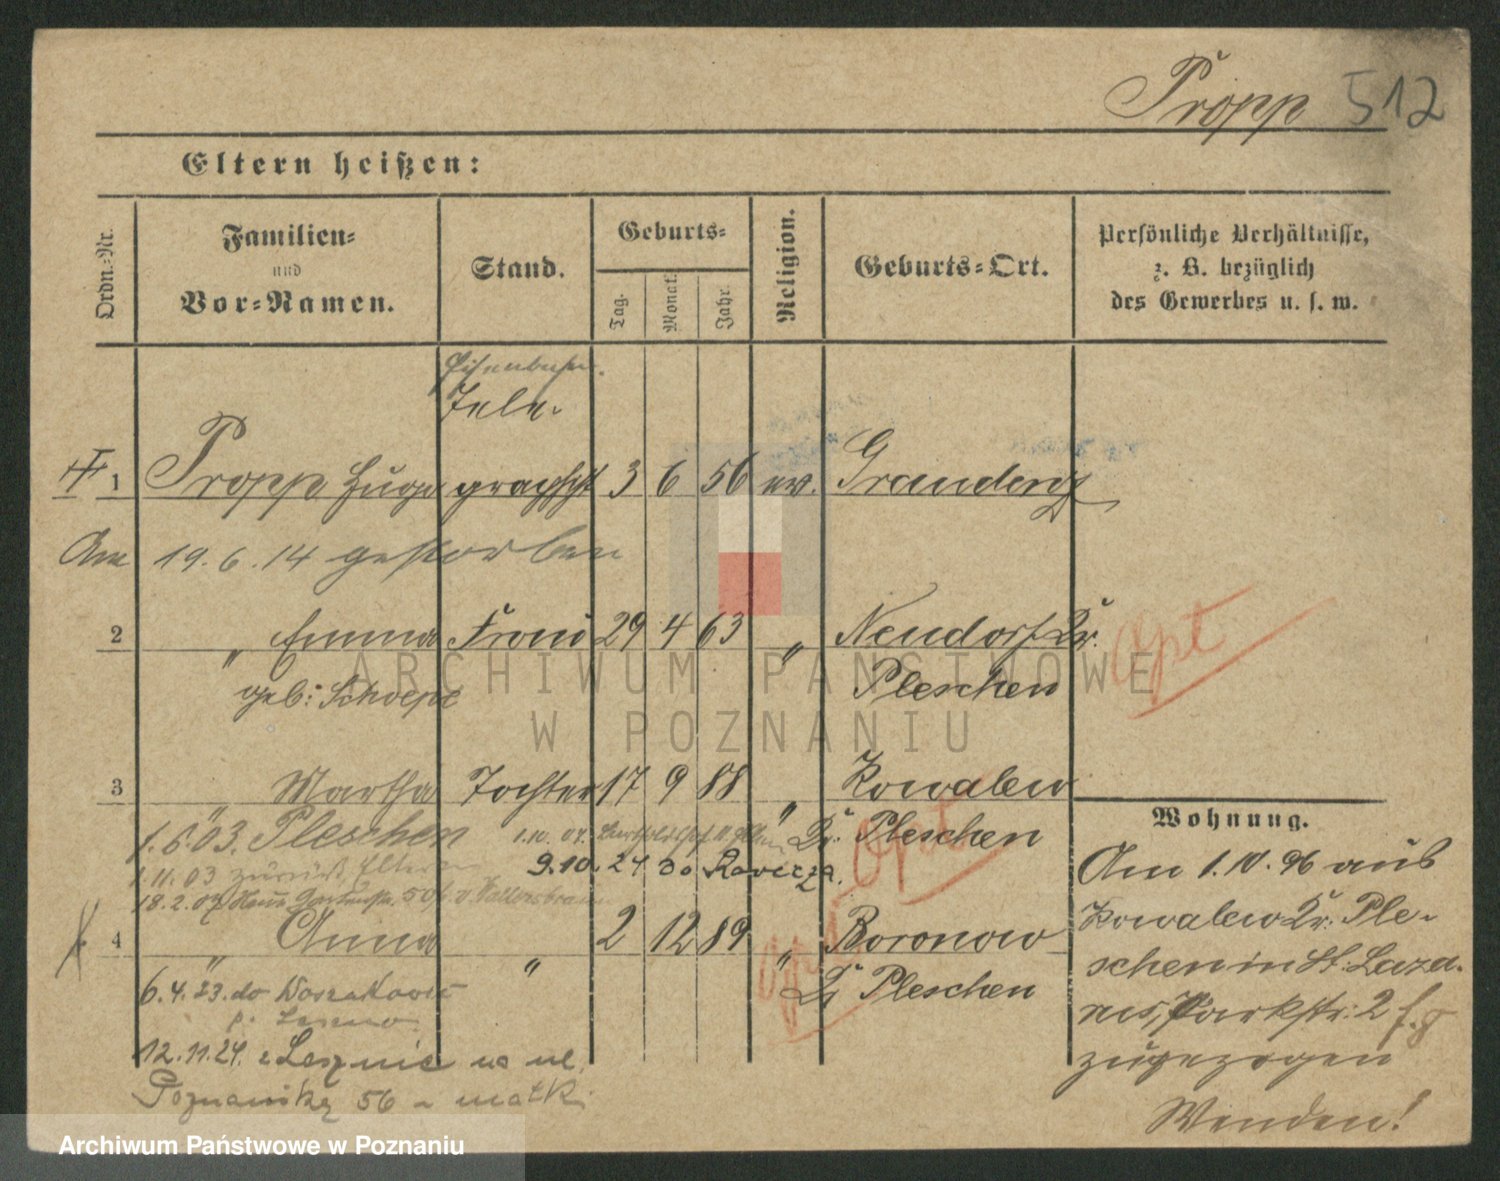 Propp 512
Eltern heißen:
Ordn.-Nr.
Familien-
und
Vor-Namen.
Stand.
Geburts-
Tag.
Monat.
Jahr.
Religion.
Geburts-Ort.
Persönliche Verhältnisse,
z. B. bezüglich
des Gewerbes u. s. w.
Eisenbahn-
Tele-
1 Propp Hugo graphist 3 6 56 ev. Graudenz
Am 19.6.14 gestorben
2 " Emma Frau 29 4 63 " Neudorf Kr.
geb: Schoepe Pleschen
Opt
3 " Martha Tochter 17 9 88 " Kowalew
1.6.03. Pleschen 1.10.07. Kr. Pleschen
1.11.03 zurück, Eltern 9.10.24 do Rawicza.
18.2.07 Opt
4 " Anna " 2 12 89 " Boronow
Opt Kr Pleschen
6.4.23. do
p. Leszno
12.11.24. z Leszna na ul.
Poznańską 56 - matki
Wohnung.
Am 1.10.96 aus
Kowalew Kr. Ple-
schen in St. Laza-
rus, Parkstr. 2
zugezogen
Wenden!
ARCHIWUM PAŃSTWOWE
W POZNANIU
Archiwum Państwowe w Poznaniu